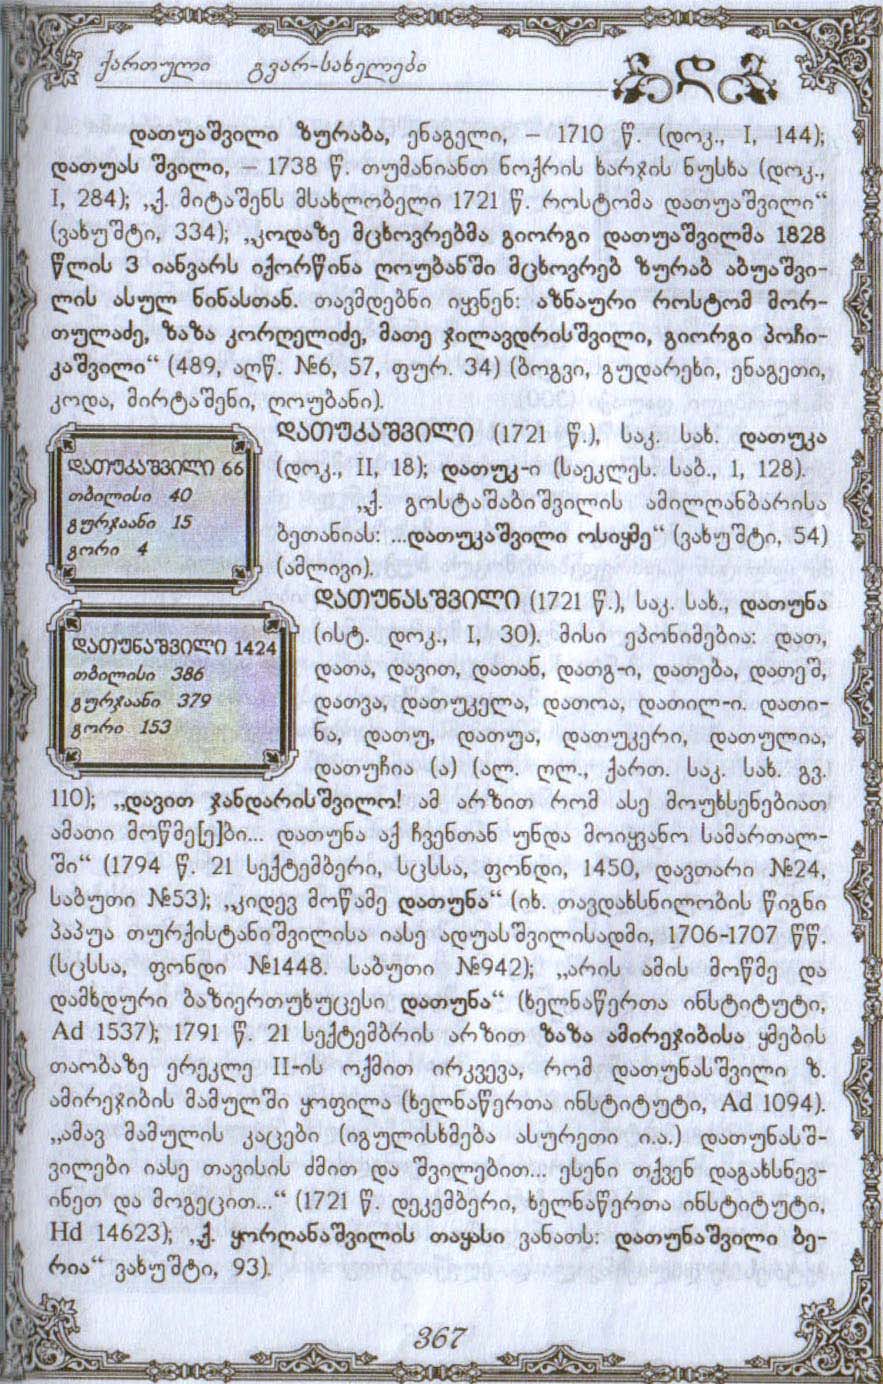 ქართული გვარ-სახელები
დ
დათუაშვილი ზურაბა, ენაგელი, – 1710 წ. (დოკ., I, 144);
დათუას შვილი, – 1738 წ. თუმანიანთ ნოქრის ხარჯის ნუსხა (დოკ.,
I, 284); „ქ. მიტაშენს მსახლობელი 1721 წ. როსტომა დათუაშვილი“
(ვახუშტი, 334); „კოდაზე მცხოვრებმა გიორგი დათუაშვილმა 1828
წლის 3 იანვარს იქორწინა ღოუბანში მცხოვრებ ზურაბ აბუაშვი-
ლის ასულ ნინასთან. თავმდებნი იყვნენ: აზნაური როსტომ მორ-
თულაძე, ზაზა კორღელიძე, მათე ჯილავდრისშვილი, გიორგი პოჩი-
კაშვილი“ (489, აღწ. №6, 57, ფურ. 34) (ბოგვი, გუდარეხი, ენაგეთი,
კოდა, მირტაშენი, ღოუბანი).
ᲓᲐᲗᲣᲙᲐᲨᲕᲘᲚᲘ (1721 წ.), საკ. სახ. დათუკა
(დოკ., II, 18); დათუკ-ი (საეკლეს. საბ., 1, 128).
„ქ. გოსტაშაბიშვილის ამილღანბარისა
ბეთანიას: ...დათუკაშვილი ოსიყმე“ (ვახუშტი, 54)
(ამლივი).
ᲓᲐᲗᲣᲙᲐᲨᲕᲘᲚᲘ 66
თბილისი 40
გურჯაანი 15
გორი 4
ᲓᲐᲗᲣᲜᲐᲡᲨᲕᲘᲚᲘ (1721 წ.), საკ. სახ., დათუნა
(ისტ. დოკ., I, 30). მისი ეპონიმებია: დათ,
დათა, დავით, დათან, დათგ-ი, დათება, დათეშ,
დათვა, დათუკელა, დათოა, დათილ-ი. დათი-
ნა, დათუ, დათუა, დათუკერი, დათულია,
დათუჩია (ა) (ალ. ღლ., ქართ. საკ. სახ. გვ.
ᲓᲐᲗᲣᲜᲐᲨᲕᲘᲚᲘ 1424
თბილისი 386
გურჯაანი 379
გორი 153
110); „დავით ჯანდარისშვილო! ამ არზით რომ ასე მოუხსენებიათ
ამათი მოწმე[ე]ბი... დათუნა აქ ჩვენთან უნდა მოიყვანო სამართალ-
ში“ (1794 წ. 21 სექტემბერი, სცსსა, ფონდი, 1450, დავთარი №24,
საბუთი №53); „კიდევ მოწამე დათუნა“ (იხ. თავდახსნილობის წიგნი
პაპუა თურქისტანიშვილისა იასე ადუასშვილისადმი, 1706-1707 წწ.
(სცსსა, ფონდი №1448. საბუთი №942); „არის ამის მოწმე და
დამხდური ბაზიერთუხუცესი დათუნა“ (ხელნაწერთა ინსტიტუტი,
Ad 1537); 1791 წ. 21 სექტემბრის არზით ზაზა ამირეჯიბისა ყმების
თაობაზე ერეკლე II-ის ოქმით ირკვევა, რომ დათუნასშვილი ზ.
ამირეჯიბის მამულში ყოფილა (ხელნაწერთა ინსტიტუტი, Ad 1094).
„ამავ მამულის კაცები (იგულისხმება ასურეთი ი.ა.) დათუნასშ-
ვილები იასე თავისის ძმით და შვილებით.... ესენი თქვენ დაგახსნევ-
ინეთ და მოგეცით...“ (1721 წ. დეკემბერი, ხელნაწერთა ინსტიტუტი,
Hd 14623); „ქ. ყორღანაშვილის თაყასი ვანათს: დათუნაშვილი ბე-
რია“ ვახუშტი, 93).
367